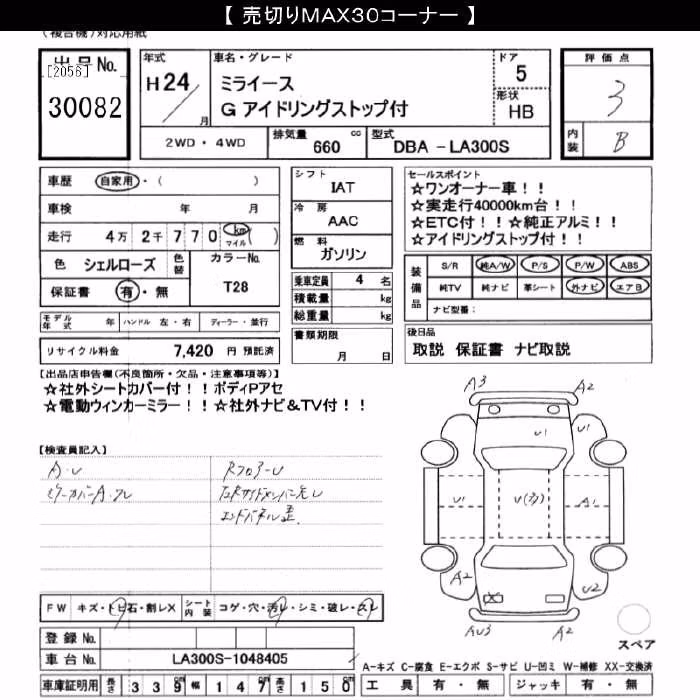 【 売切りMAX30コーナー 】
(複合機)対応用紙
出品No.
[2056]
30082
年式
H24/月
車名・グレード
ミライース
G アイドリングストップ付
ドア
5
形状
HB
評価点
3
内装
B
2WD・4WD
排気量 660 cc
型式 DBA - LA300S
車歴 自家用・( )
車検 年 月
走行 4万 2千 7 7 0 km マイル ( )
色 シェルローズ 色替
カラーNo. T28
保証書 有・無
シフト
IAT
冷房
AAC
燃料
ガソリン
セールスポイント
☆ワンオーナー車!!
☆実走行40000km台!!
☆ETC付!!☆純正アルミ!!
☆アイドリングストップ付!!
装備品
S/R 純A/W P/S P/W ABS
純TV 純ナビ 革シート 外ナビ エアB
ナビ型番:
乗車定員 4 名
積載量 kg
総重量 kg
モデル年式 年 ハンドル 左・右 ディーラー・並行
リサイクル料金 7,420 円 預託済
書類期限
月 日
後日品
取説 保証書 ナビ取説
【出品店申告欄(不良箇所・欠品・注意事項等)】
☆社外シートカバー付!!ボディPアセ
☆電動ウィンカーミラー!!☆社外ナビ&TV付!!
【検査員記入】
A・U
RフロアーU
エンドパネル歪
A3 A2
U1 U1
U1 U(多) A1
A2 U2
X
AU3 A2
スペア
FW キズ・トビ石・割レX
シート内装 コゲ・穴・汚レ・シミ・破レ・スレ
登録No.
車台No. LA300S-1048405
A-キズ C-腐食 E-エクボ S-サビ U-凹ミ W-補修 XX-交換済
車庫証明用 長さ 3 3 9 幅 1 4 7 高さ 1 5 0
工具 有・無 ジャッキ 有・無